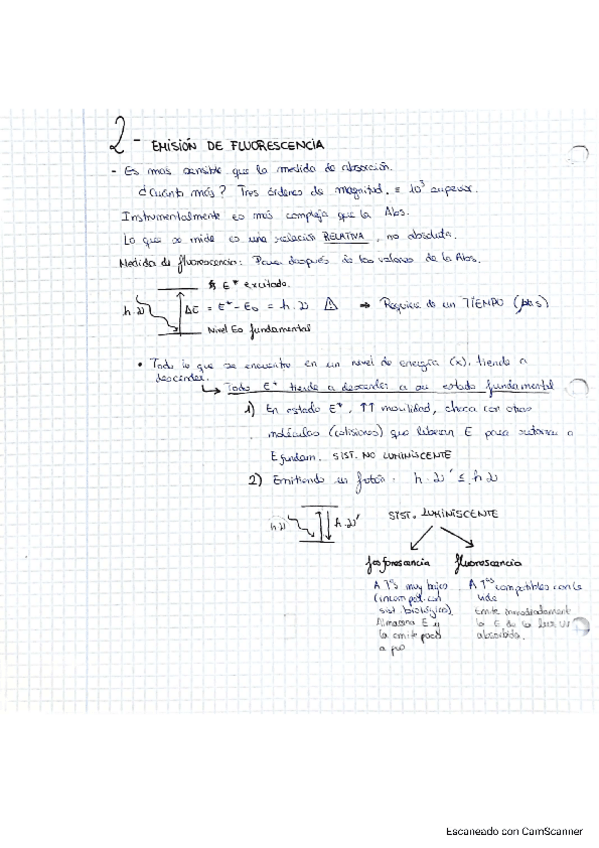 2- EMISIÓN DE FLUORESCENCIA
- Es más sensible que la medida de absorción.
¿Cuánto más? Tres órdenes de magnitud. = 10³ superior.
Instrumentalmente es más compleja que la Abs.
Lo que se mide es una relación RELATIVA, no absoluta.
Medida de fluorescencia: Pasa después de los valores de la Abs.
E* excitado.
h.ν ΔE = E* - E₀ = h.ν ⚠ → Requiere de un TIEMPO
Nivel E₀ fundamental
• Todo lo que se encuentra en un nivel de energía (x), tiende a
descender.
↳ Todo E* tiende a descender a su estado fundamental
1) En estado E*, ↑↑ movilidad, choca con otras
moléculas (colisiones) que liberan E para retornar a
E fundam. SIST. NO LUMINISCENTE
2) Emitiendo un fotón: h.ν' ≤ h.ν
h.ν h.ν' SIST. LUMINISCENTE
fosforescencia fluorescencia
A Tªs muy bajas A Tªs compatibles con la
(incompat. con vida
sist. biológico). Emite inmediatament
Almacena E y la E de la luz UV
la emite poco absorbida.
a poco
Escaneado con CamScanner